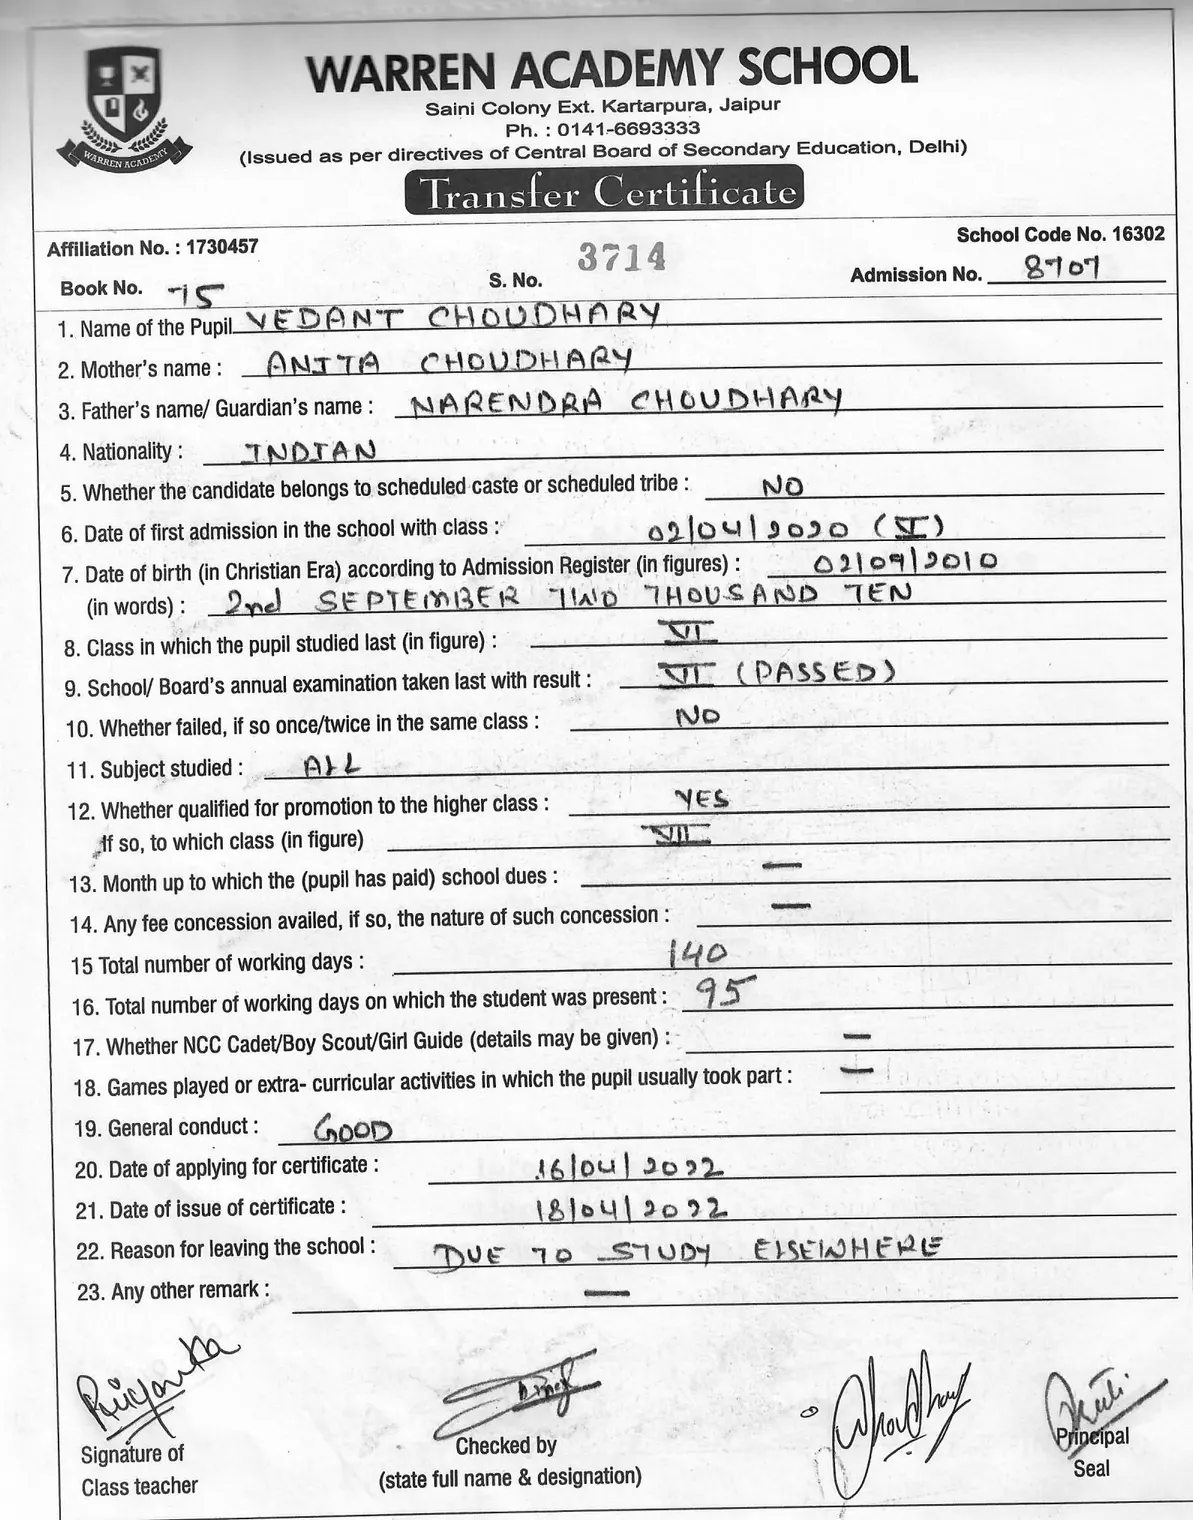 WARREN ACADEMY SCHOOL
Saini Colony Ext. Kartarpura, Jaipur
Ph. : 0141-6693333
(Issued as per directives of Central Board of Secondary Education, Delhi)
WARREN ACADEMY
Transfer Certificate
Affiliation No. : 1730457
School Code No. 16302
Book No. 75
S. No. 3714
Admission No. 8707
1. Name of the Pupil VEDANT CHOUDHARY
2. Mother's name : ANITA CHOUDHARY
3. Father's name/ Guardian's name : NARENDRA CHOUDHARY
4. Nationality : INDIAN
5. Whether the candidate belongs to scheduled caste or scheduled tribe : NO
6. Date of first admission in the school with class : 02/04/2020 (V)
7. Date of birth (in Christian Era) according to Admission Register (in figures) : 02/09/2010
(in words) : 2nd SEPTEMBER TWO THOUSAND TEN
8. Class in which the pupil studied last (in figure) : VI
9. School/ Board's annual examination taken last with result : VI (PASSED)
10. Whether failed, if so once/twice in the same class : NO
11. Subject studied : ALL
12. Whether qualified for promotion to the higher class : YES
If so, to which class (in figure) VII
13. Month up to which the (pupil has paid) school dues : —
14. Any fee concession availed, if so, the nature of such concession : —
15 Total number of working days : 140
16. Total number of working days on which the student was present : 95
17. Whether NCC Cadet/Boy Scout/Girl Guide (details may be given) : —
18. Games played or extra- curricular activities in which the pupil usually took part : —
19. General conduct : GOOD
20. Date of applying for certificate : 16/04/2022
21. Date of issue of certificate : 18/04/2022
22. Reason for leaving the school : DUE TO STUDY ELSEWHERE
23. Any other remark : —
Priyanka
Signature of
Class teacher
Checked by
(state full name & designation)
Principal
Seal